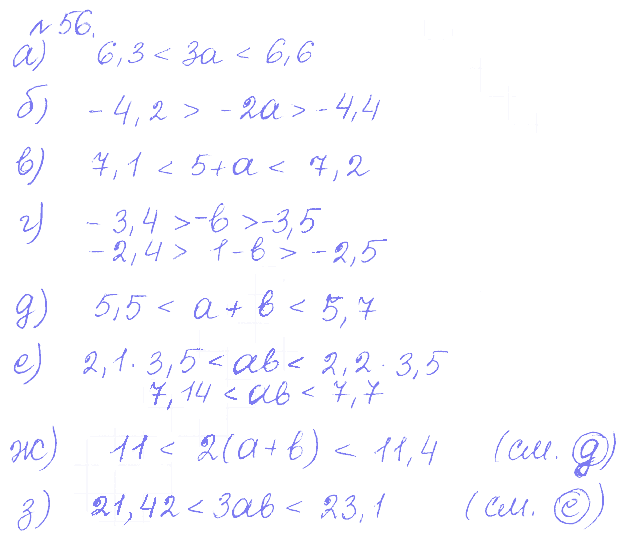 № 56.
а) 6,3 < 3а < 6,6
б) -4,2 > -2а > -4,4
в) 7,1 < 5+а < 7,2
г) -3,4 > -в > -3,5
-2,4 > 1-в > -2,5
д) 5,5 < а + в < 5,7
е) 2,1 · 3,5 < ав < 2,2 · 3,5
7,14 < ав < 7,7
ж) 11 < 2(а+в) < 11,4 (см. д)
з) 21,42 < 3ав < 23,1 (см. е)